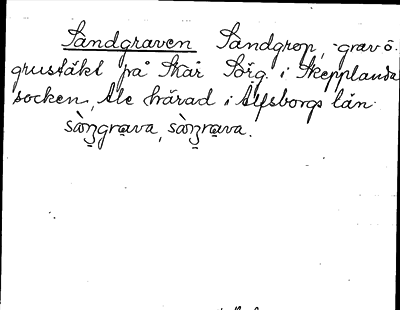 Sandgraven Sandgrop, -grav o.
grustäkt på Skår Sörg. i Skepplanda
socken, Ale härad i Älfsborgs län.